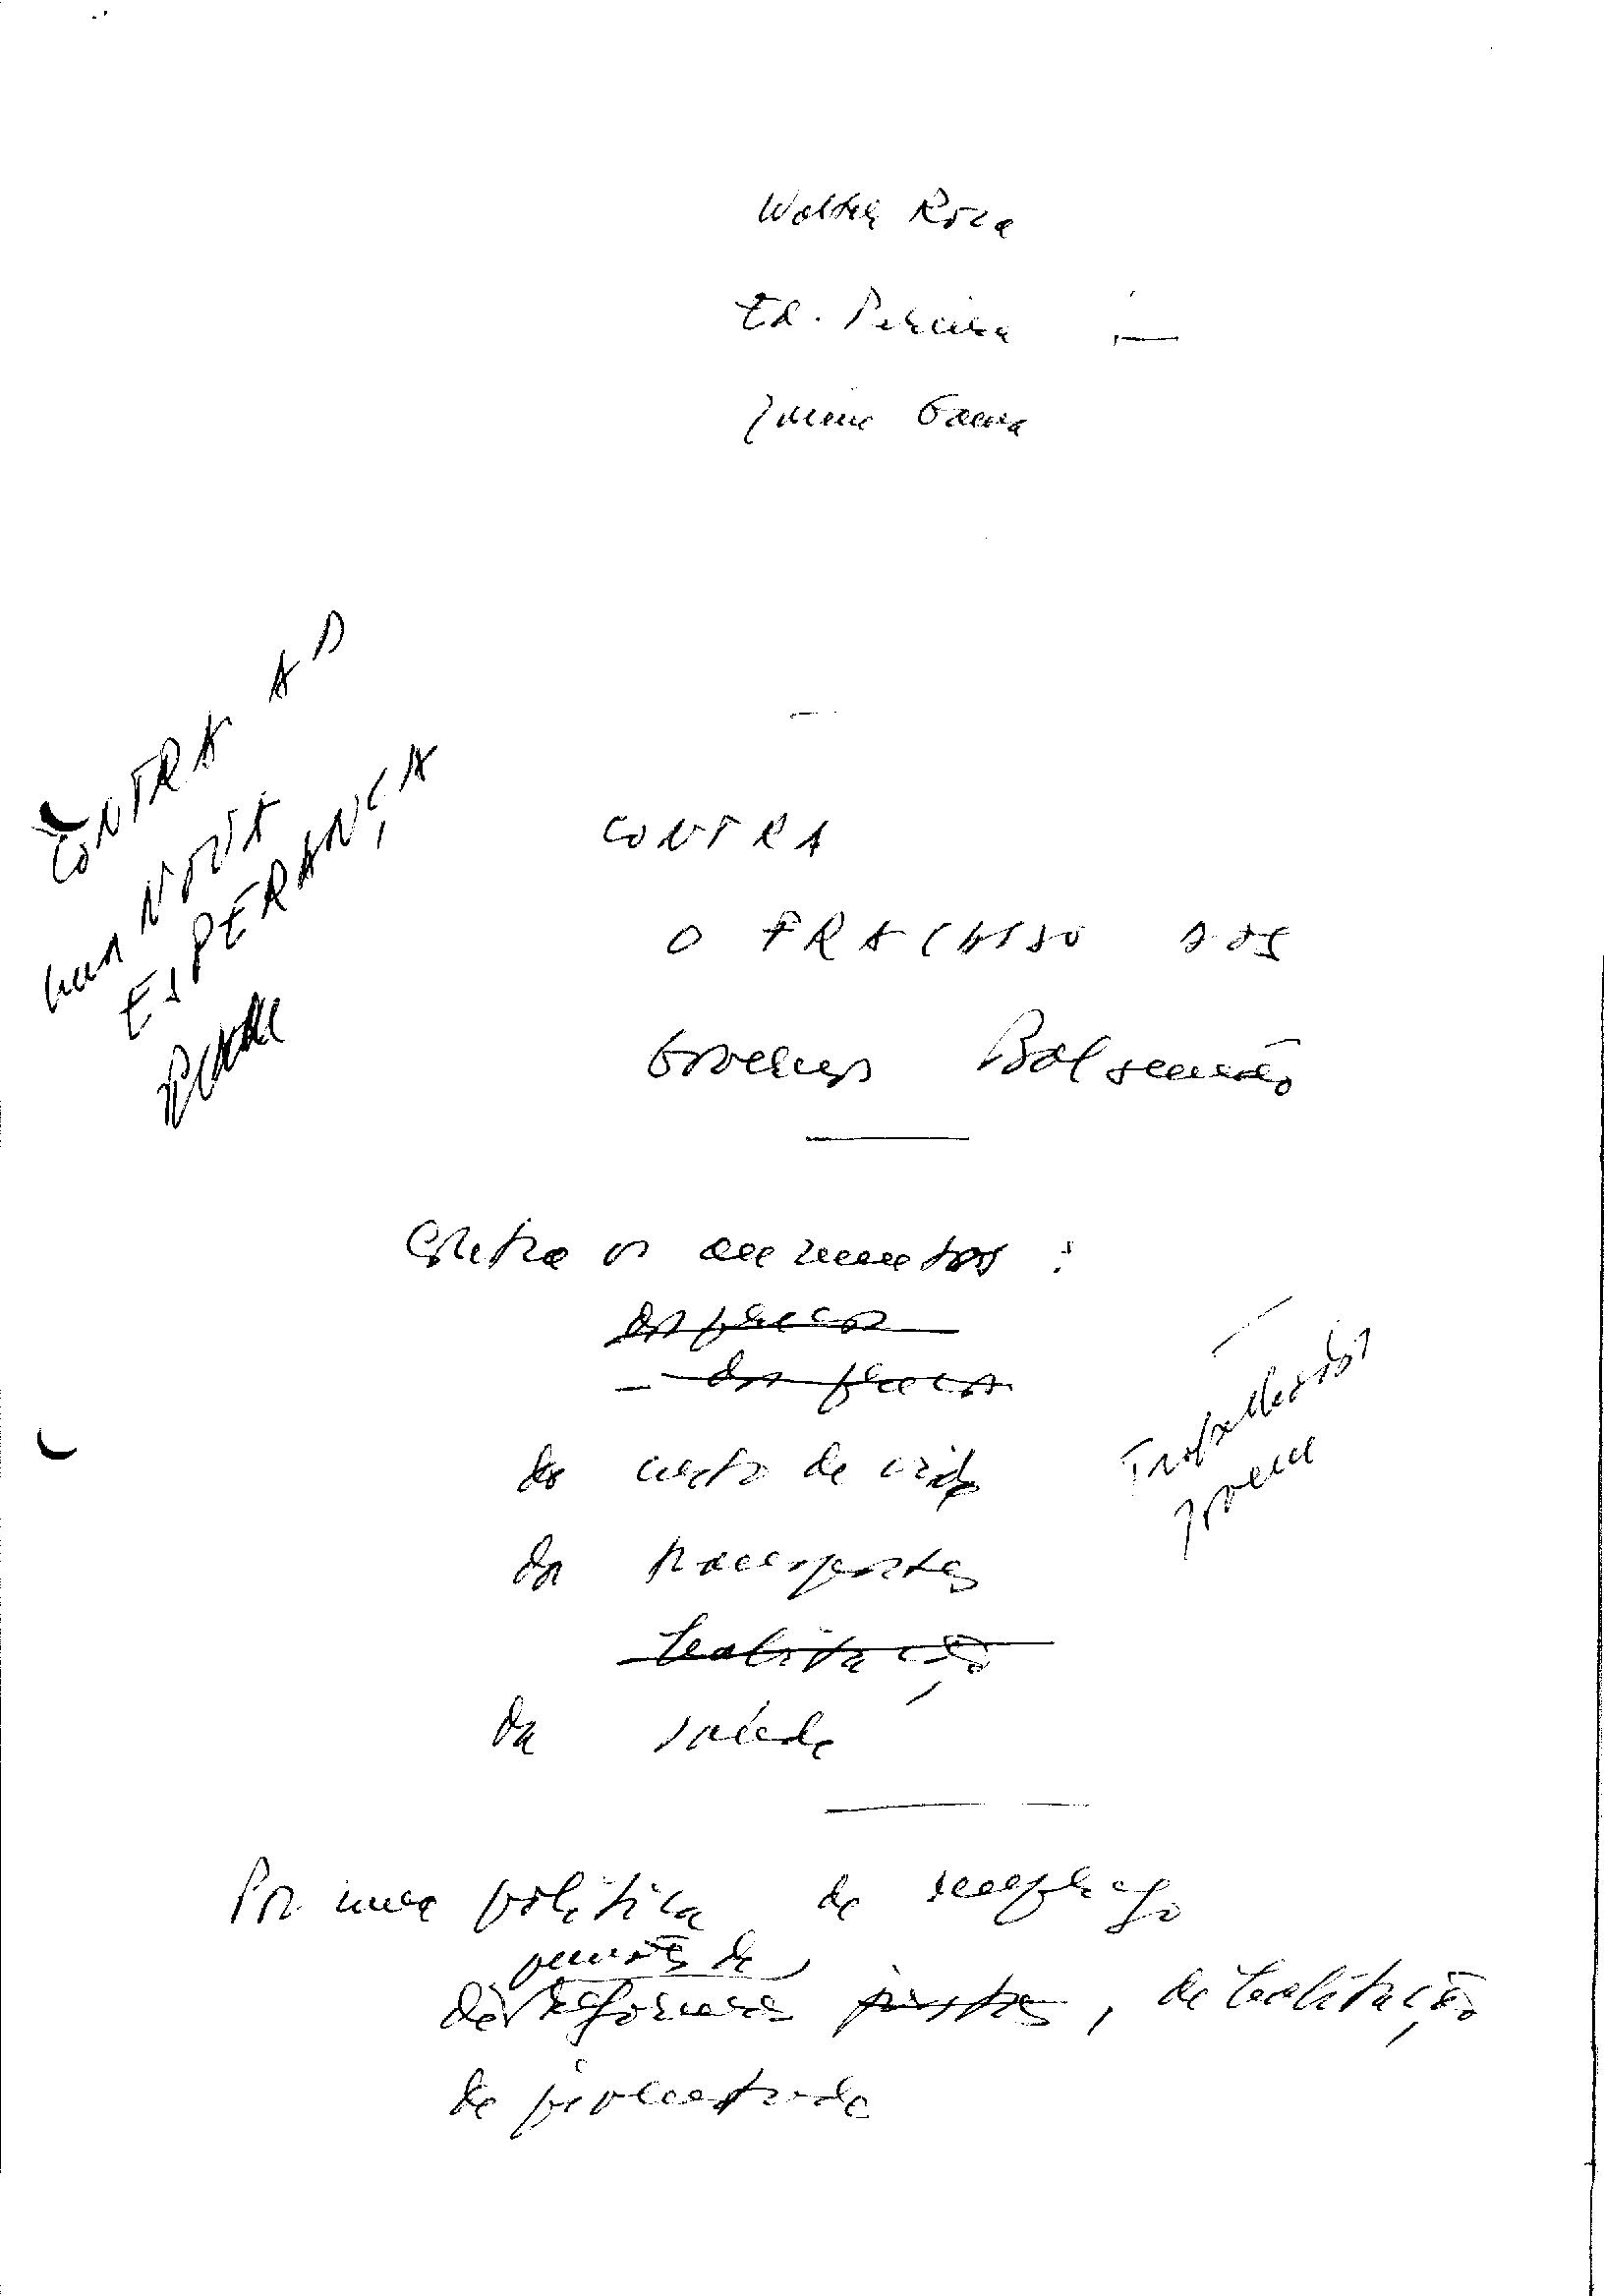 Walter Rosa
Ed. Pereira
Jaime Gama
CONTRA AD
uma NOVA
ESPERANÇA
CONTRA
O FRACASSO DOS
Governos Balsemão
Contra os aumentos :
dos preços
- dos preços
do custo de vida
dos transportes
habitação
da saúde
Trabalhador
jovem
Por uma política de emprego
pensões de
de reforma justas, de habitação
de juventude